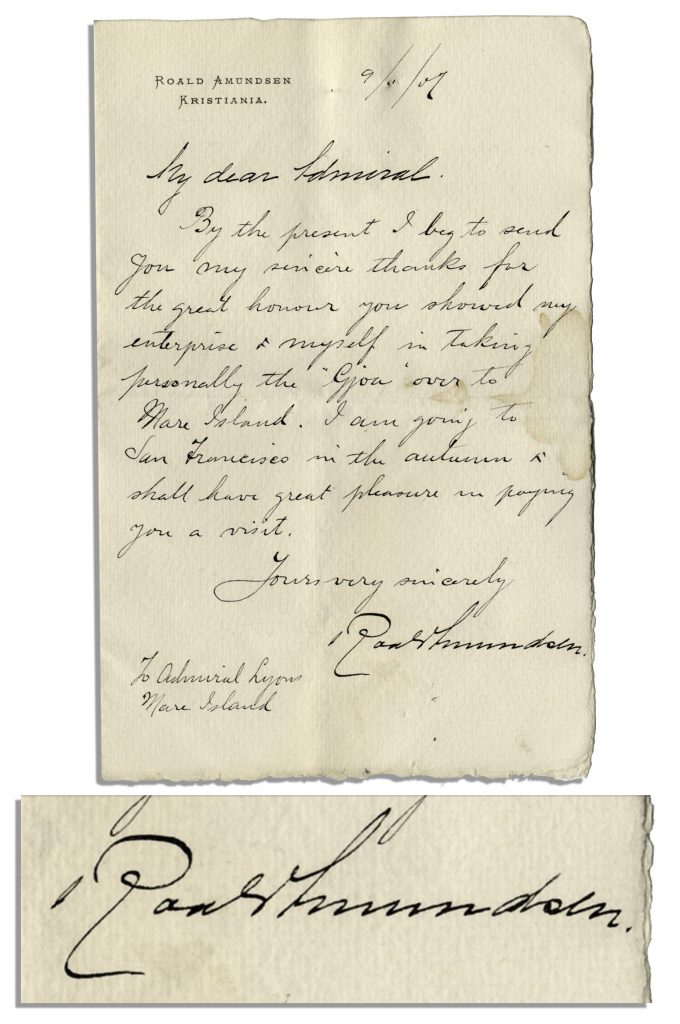 ROALD AMUNDSEN
KRISTIANIA.
My dear Admiral.
By the present I beg to send
you my sincere thanks for
the great honour you showed my
enterprise & myself in taking
personally the "Gjoa" over to
Mare Island. I am going to
San Francisco in the autumn &
shall have great pleasure in paying
you a visit.
Yours very sincerely
Roald Amundsen.
To Admiral Lyons
Mare Island
Roald Amundsen.